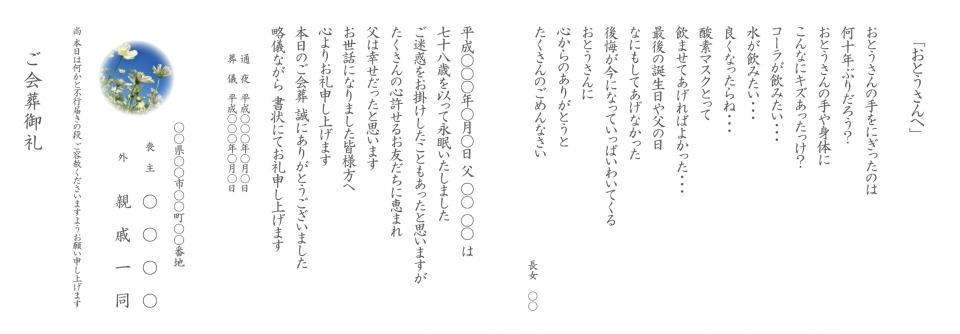 「おとうさんへ」
おとうさんの手をにぎったのは
何十年ぶりだろう？
おとうさんの手や身体に
こんなにキズあったっけ？
コーラが飲みたい・・・
水が飲みたい・・・
良くなったらね・・・
酸素マスクとって
飲ませてあげればよかった・・・
最後の誕生日や父の日
なにもしてあげなかった
後悔が今になっていっぱいわいてくる
おとうさんに
心からのありがとうと
たくさんのごめんなさい
長女 〇〇
平成〇〇〇年〇月〇日 父 〇〇 〇〇 は
七十八歳を以って永眠いたしました
ご迷惑をお掛けしたこともあったと思いますが
たくさんの心許せるお友だちに恵まれ
父は幸せだったと思います
お世話になりました皆様方へ
心よりお礼申し上げます
本日のご会葬 誠にありがとうございました
略儀ながら 書状にてお礼申し上げます
通夜 平成〇〇〇年〇月〇日
葬儀 平成〇〇〇年〇月〇日
〇〇県〇〇市〇〇町〇〇番地
喪主 〇〇〇〇
外 親戚一同
尚 本日は何かと不行届きの段 ご容赦くださいますようお願い申し上げます
ご会葬御礼